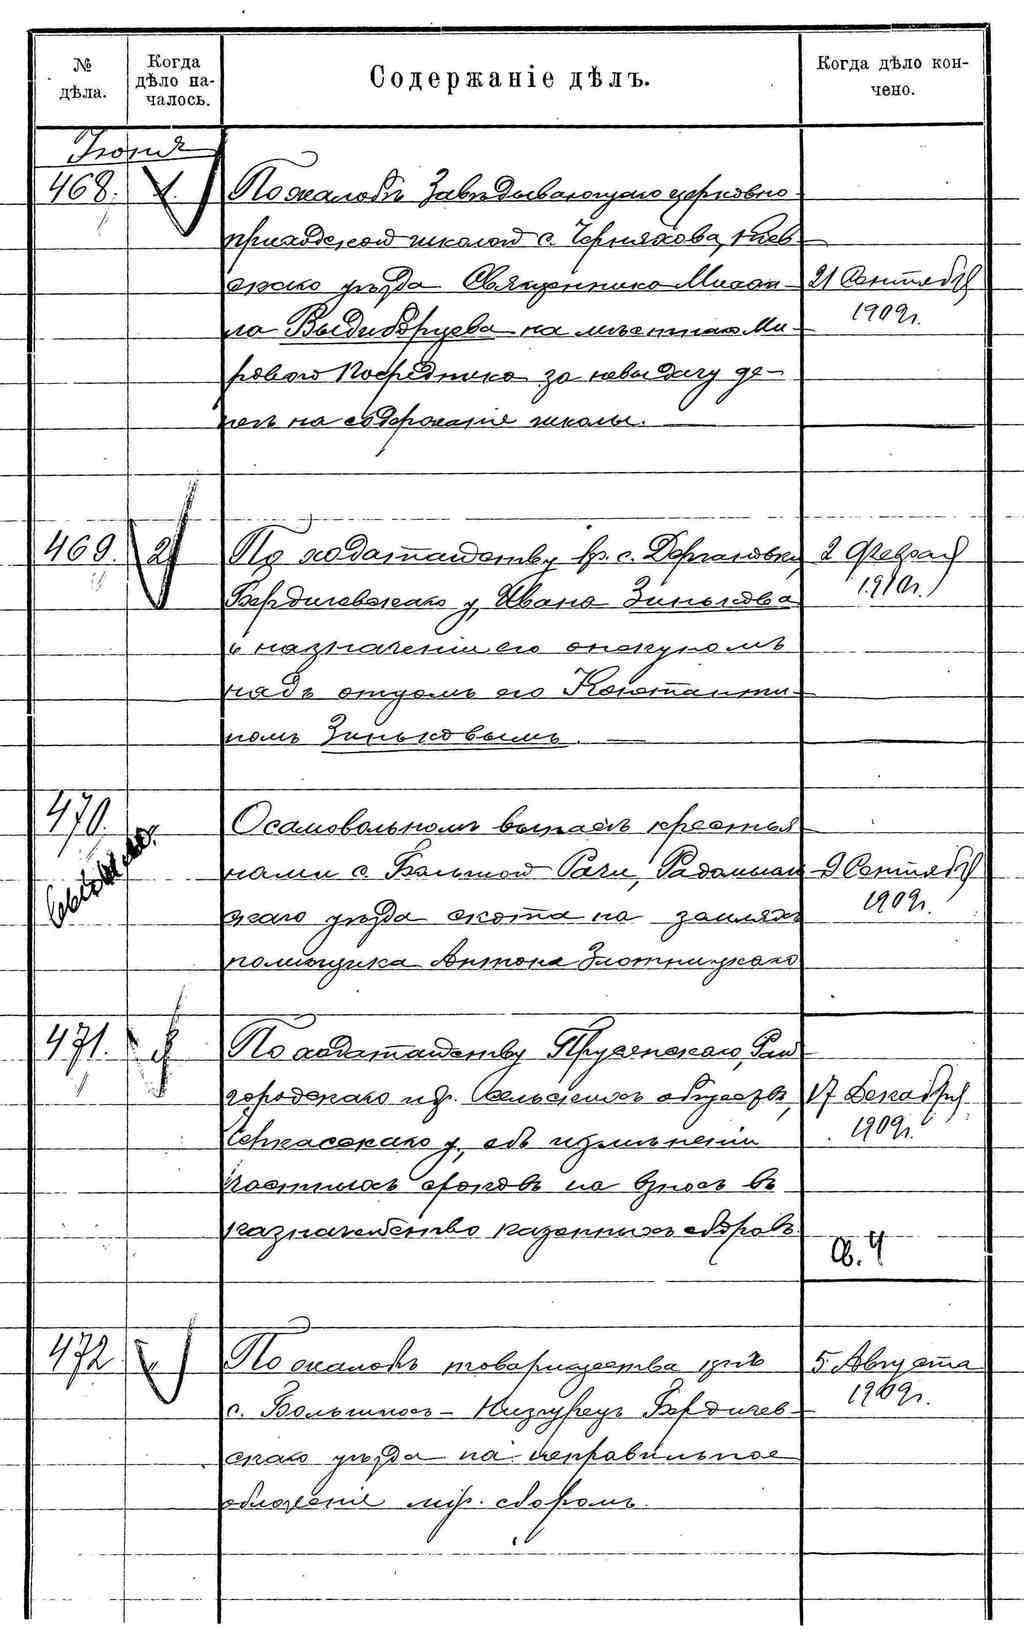 № дѣла.
Когда дѣло на-
чалось.
Содержаніе дѣлъ.
Когда дѣло кон-
чено.
Іюня
468. 1. По жалобѣ Завѣдывающаго церковно-
приходской школой с. Черняхова, Кіев-
скаго уѣзда Священника Михаи-
ла Выдыборцева на мѣстнаго Ми-
рового Посредника за невыдачу де-
негъ на содержаніе школы.
21 Сентября
1909г.
469. 2 По ходатайству кр. с. Дергановки,
Бердичевскаго у, Ивана Зинькова
о назначеніи его опекуномъ
надъ отцомъ его Константи-
номъ Зиньковымъ.
2 Февраля
1910г.
470. О самовольномъ выпасѣ крестья
нами с. Большой Рачи, Радомысль
скаго уѣзда скота на земляхъ
помѣщика Антона Злотницкаго
9 Сентября
1909г.
471. По ходатайству Прусенскаго, Рай
городскаго и др. сельскихъ обществъ,
Черкасскаго у., объ измѣненіи
частныхъ сроковъ на взносъ въ
казначейство казенныхъ сборовъ.
17 Декабря
1909г.
Св. 4
472 " По жалобѣ товарищества кр.
с. Большихъ-Низгурецъ Бердичев-
скаго уѣзда на неправильное
обложеніе мір. сборомъ.
5 Августа
1909г.